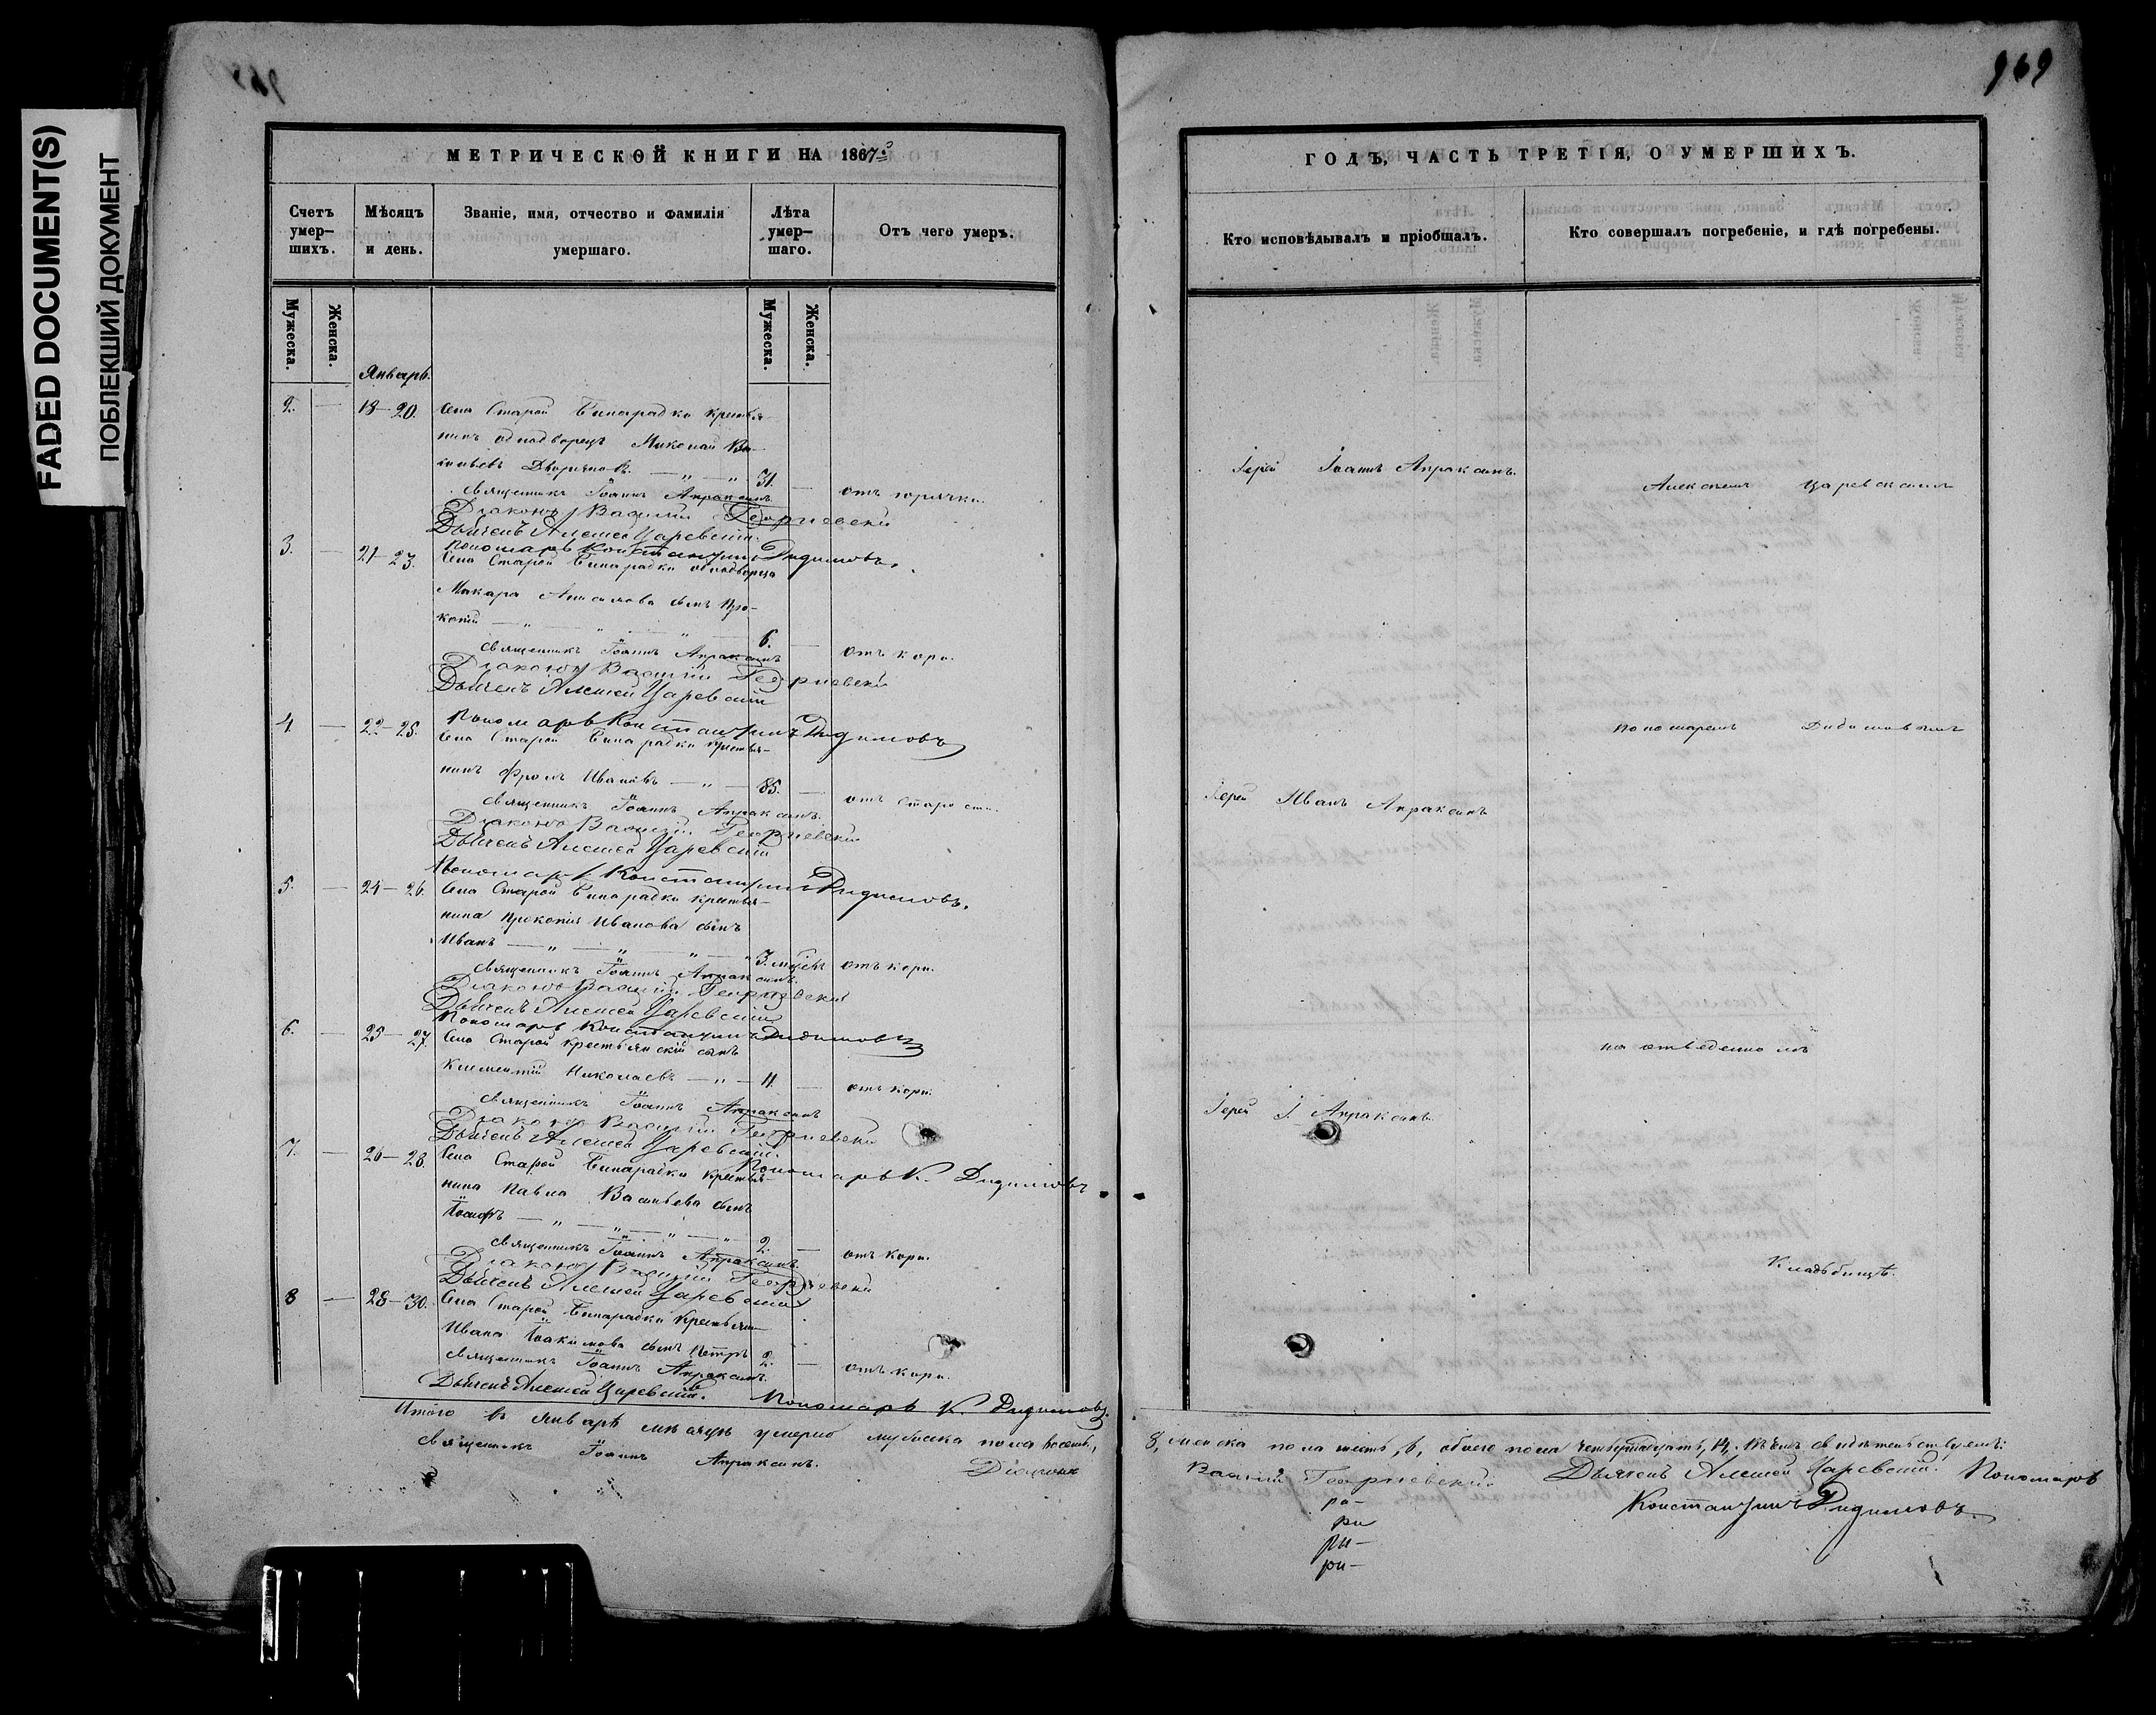 FADED DOCUMENT(S)
ПОБЛЕКШИЙ ДОКУМЕНТ
969
МЕТРИЧЕСКОЙ КНИГИ НА 1867
Счетъ умер-шихъ.
Мѣсяцъ и день.
Званіе, имя, отчество и фамилія умершаго.
Лѣта умер-шаго.
Отъ чего умеръ.
Мужеска.
Женска.
Мужеска.
Женска.
Январь.
2. — 18–20. Села Старой Бинарадки крестья-
нинъ однодворецъ Николай Ва-
сильевъ Дворяновъ. — „ — „ 31. — отъ горячки.
Священникъ Іоаннъ Апраксинъ
Діаконъ Василій Георгіевскій
Дьячекъ Алексей Царевскій.
Пономарь Константинъ Дидимовъ.
3. — 21–23. Села Старой Бинарадки однодворца
Макара Анисимова сынъ Про-
копій — „ — „ — „ — 6. — отъ кори.
Священникъ Іоаннъ Апраксинъ
Діаконъ Василій Георгіевскій
Дьячекъ Алексей Царевскій
Пономарь Константинъ Дидимовъ
4. — 22–25. Села Старой Бинарадки крестья-
нинъ Фролъ Ивановъ — „ — 85. — отъ старости.
Священникъ Іоаннъ Апраксинъ.
Діаконъ Василій Георгіевскій
Дьячекъ Алексей Царевскій
Пономарь Константинъ Дидимовъ.
5. — 24–26. Села Старой Бинарадки крестья-
нина Прокопія Иванова сынъ
Иванъ — „ — „ — „ — „ 3. отъ кори.
Священникъ Іоаннъ Апраксинъ.
Діаконъ Василій Георгіевскій
Дьячекъ Алексей Царевскій
Пономарь Константинъ Дидимовъ
6. — 25–27. Села Старой крестьянскій сынъ
Климентій Николаевъ — „ — 11. — отъ кори.
Священникъ Іоаннъ Апраксинъ
Діаконъ Василій Георгіевскій
Дьячекъ Алексей Царевскій.
Пономарь К. Дидимовъ
7. — 26–28. Села Старой Бинарадки крестья-
нина Павла Васильева сынъ
Іосифъ — „ — „ — „ — „ 2. — отъ кори.
Священникъ Іоаннъ Апраксинъ.
Діаконъ Василій Георгіевскій
Дьячекъ Алексей Царевскій
8 — 28–30. Села Старой Бинарадки крестьян
Ивана Іоакимова сынъ Петръ 2. — отъ кори.
Священникъ Іоаннъ Апраксинъ.
Дьячекъ Алексей Царевскій. Пономарь К. Дидимовъ.
Итого въ Январѣ мѣсяцѣ умерло мужеска пола восемь,
Священникъ Іоаннъ Апраксинъ. Діаконъ
ГОДЪ, ЧАСТЬ ТРЕТІЯ, О УМЕРШИХЪ.
Кто исповѣдывалъ и пріобщалъ.
Кто совершалъ погребеніе, и гдѣ погребены.
Іерей Іоаннъ Апраксинъ.
Алексѣемъ Царевскимъ
пономаремъ Дидимовымъ
Іерей Иванъ Апраксинъ
на отведенномъ
Іерей І. Апраксинъ.
Кладбищѣ.
8, женска пола шесть, 6, обоего пола четырнадцать, 14, въ чемъ свидѣтельствуемъ:
Василій Георгіевскій. Дьячекъ Алексей Царевскій. Пономарь
Константинъ Дидимовъ.
ри–
ри
ри–
ри–